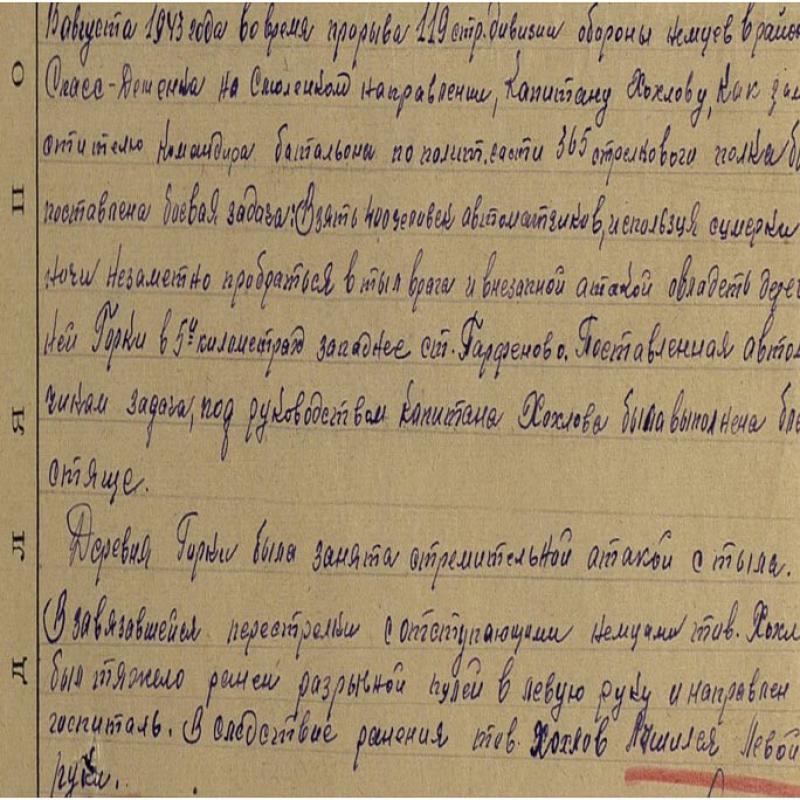 В августа 1943 года во время прорыва 119 стр. дивизии обороны немцев в район
Спасс-Деменка на Смоленском направлении, Капитану Хохлову, как зам
стителю командира батальона по полит. части 365 стрелкового полка бы
поставлена боевая задача: Взять 400 человек автоматчиков, используя сумерки
ночи незаметно пробраться в тыл врага и внезапной атакой овладеть дерев
ней Горки в 5и километрах западнее ст. Парфеново. Поставленная автом
чикам задача, под руководством капитана Хохлова была выполнена бле
стяще.
Деревня Горки была занята стремительной атакой с тыла.
В завязавшейся перестрелки с отступающими немцами тов. Хохл
был тяжело ранен разрывной пулей в левую руку и направлен
госпиталь. В следствие ранения тов. Хохлов лишился левой
руки.
О
П
Я
Л
Д